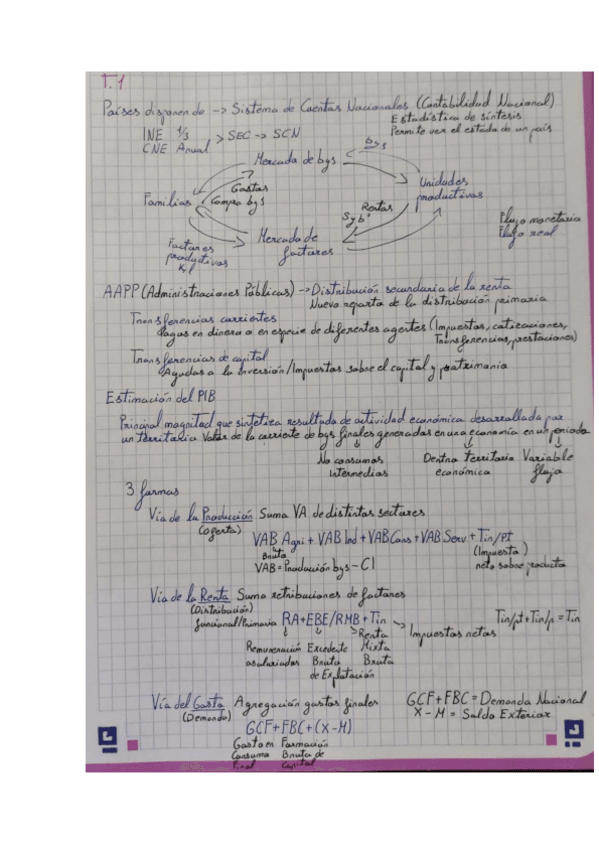 T.1
Países disponen de -> Sistema de Cuentas Nacionales (Contabilidad Nacional)
Estadística de síntesis
Permite ver el estado de un país
INE 1/3
CNE Anual > SEC -> SCN
Mercado de bys
bys
Gastos
Compra bys
Familias
Unidades
productivas
Rentas
SyB°
Factores
productivos
KyL
Mercado de
factores
Flujo monetario
Flujo real
AAPP (Administraciones Públicas) -> Distribución secundaria de la renta
Nuevo reparto de la distribución primaria
Transferencias corrientes
Pagos en dinero o en especie de diferentes agentes (Impuestos, cotizaciones,
Transferencias, prestaciones)
Transferencias de capital
Ayudas a la Inversión/Impuestos sobre el capital y patrimonio
Estimación del PIB
Principal magnitud que sintetiza resultado de actividad económica desarrollada por
un territorio Valor de la corriente de bys finales generadas en una economía en un periodo
No consumos
intermedios
Dentro territorio
económica
Variable
flujo
3 formas
Vía de la Producción Suma VA de distintos sectores
(Oferta)
VAB Agri + VAB Ind + VAB Cons + VAB Serv + Tin/pt
Bruto
(Impuesto)
neto sobre producto
VAB = Producción bys - CI
Vía de la Renta Suma retribuciones de factores
(Distribución)
funcional/Primaria
RA + EBE/RMB + Tin
Impuestos netos
Tin/pt + Tin/p = Tin
Remuneración
asalariados
Excedente
Bruto
de Explotación
Renta
Mixta
Bruta
Vía del Gasto Agregación gastos finales
(Demanda)
GCF + FBC + (X - M)
GCF + FBC = Demanda Nacional
X - M = Saldo Exterior
Gasto en
Consumo
Final
Formación
Bruta de
Capital